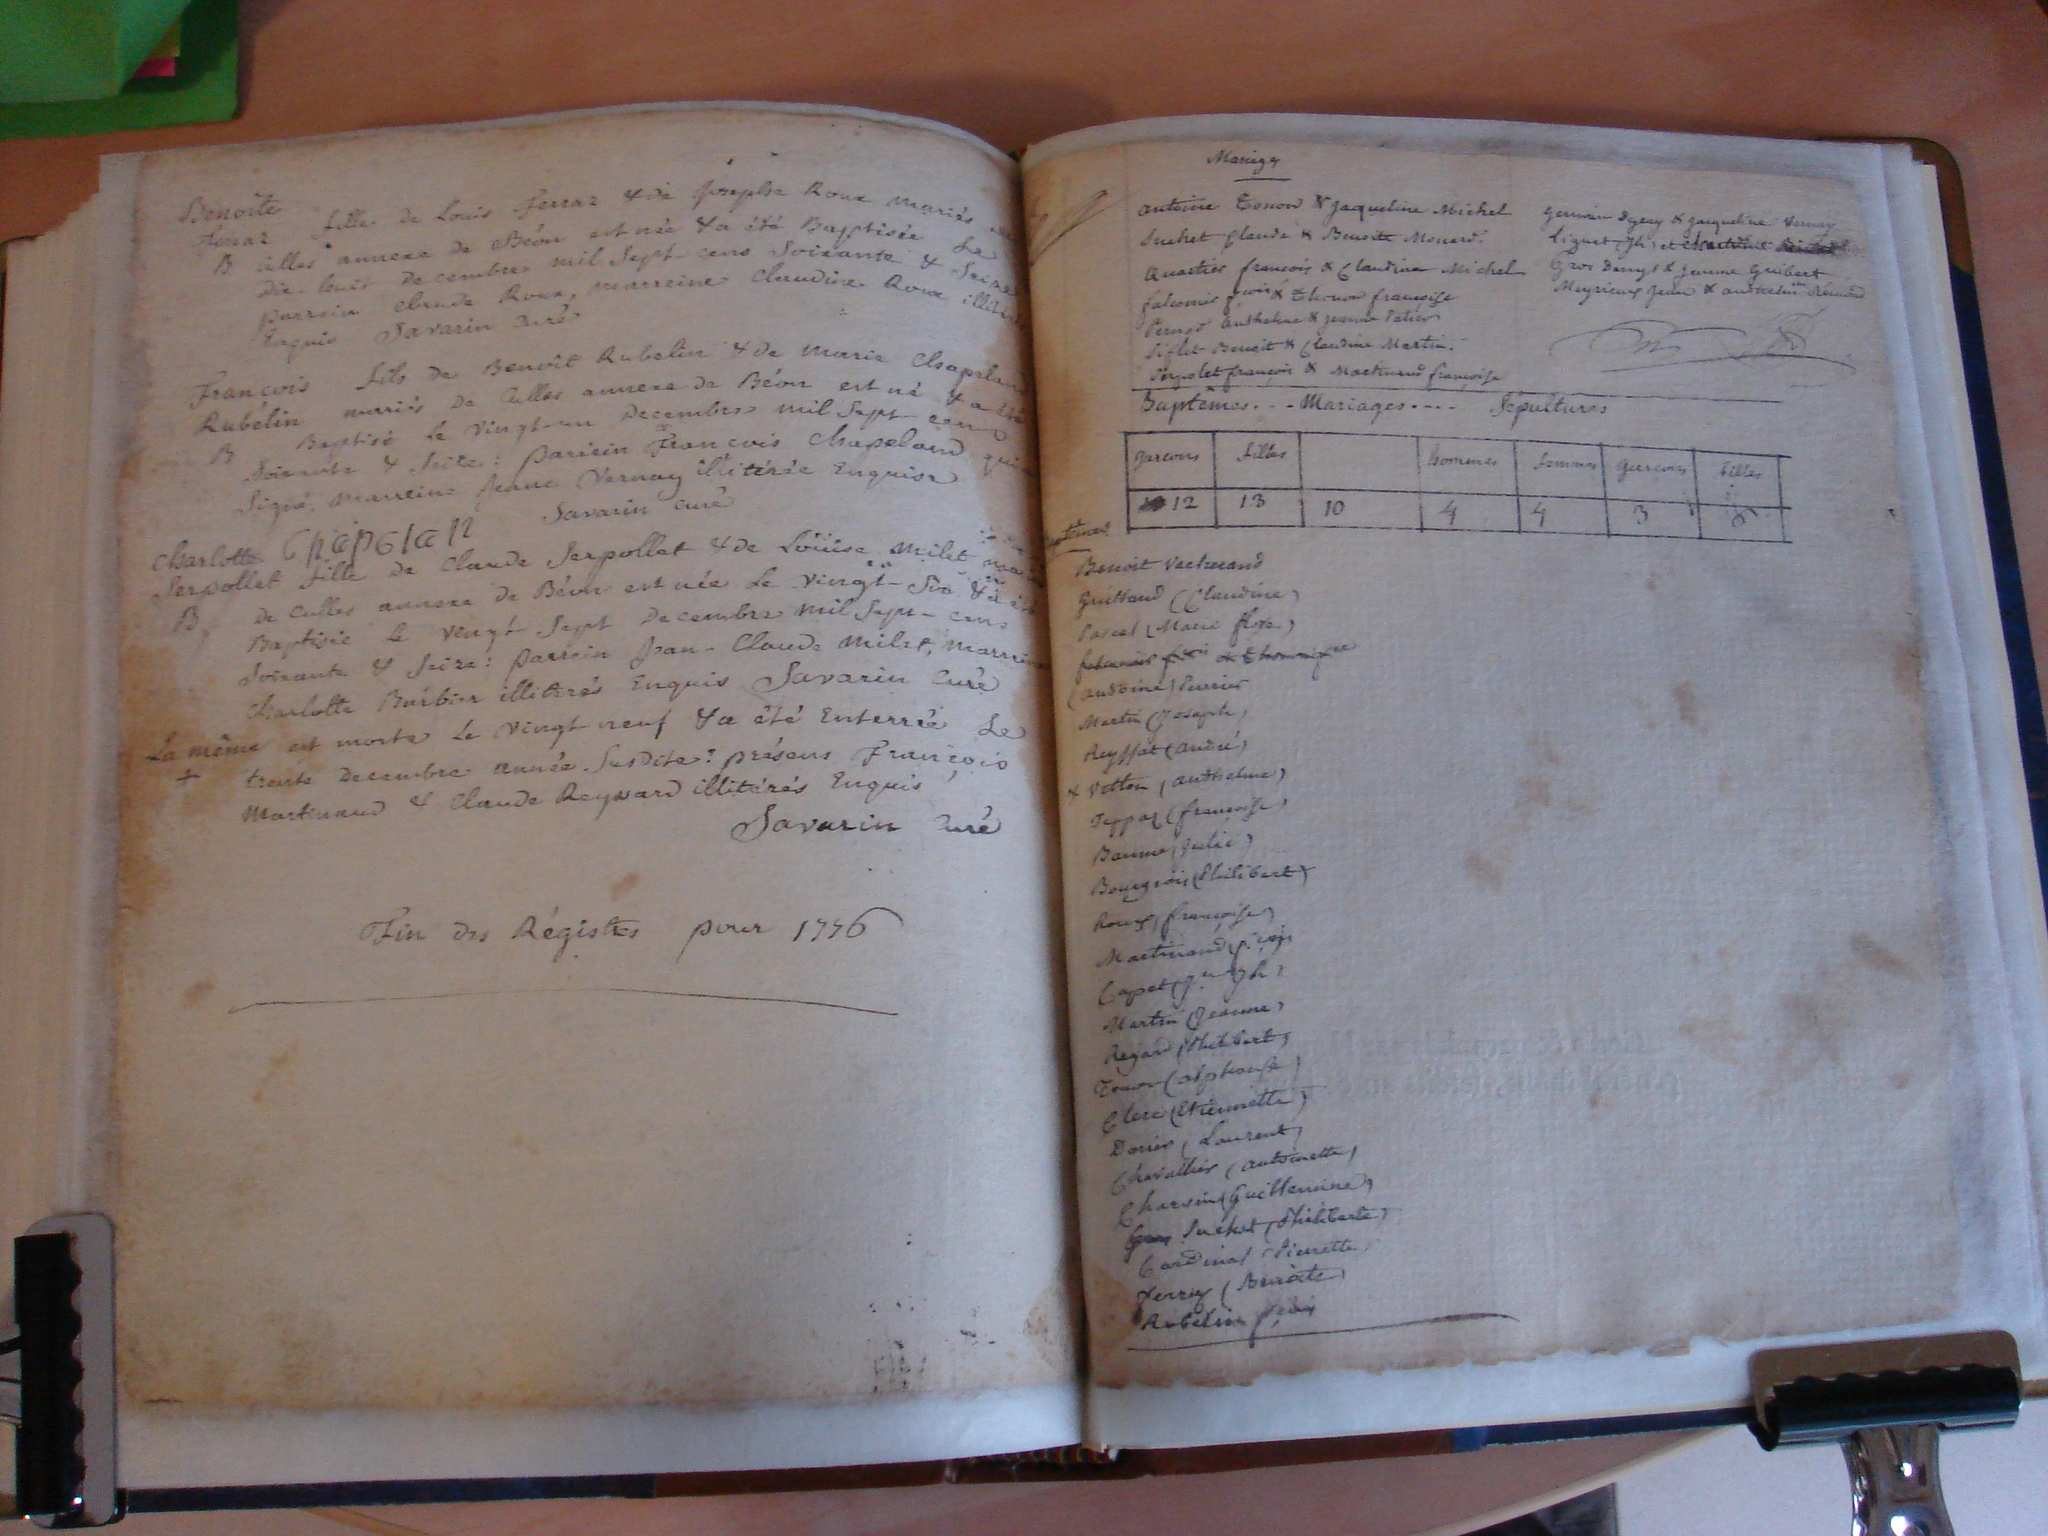 Benoîte
Ferraz fille de Louis Ferraz & de Josephe Roux mariés
B culles annexe de Béon est née & a été Baptisée Le
Dix-huit Decembre mil Sept-cens Soixante & Seize
parrein claude Roux, marreine Claudine Roux illitérés
Enquis Savarin Curé
François fils de Benoît Rubelin & de marie Chapeland
Rubélin mariés de Culles annexe de Béon est né & a été
B Baptisé Le vingt-un Decembre mil Sept cens
Soixante & Seize: parrein François Chapeland qui a
Signé, marreine Jeane Vernay illitérée Enquise
Savarin curé
Chapelan
Charlotte
Serpollet fille de Claude Serpollet & de Loüise milet
B de culles annexe de Béon est née Le vingt-Six & a été
Baptisée Le vingt Sept Decembre mil Sept-cens
Soixante & Seize: parrein Jean-Claude milet, marreine
Charlotte Barbier illitérés Enquis Savarin Curé
La même est morte Le vingt neuf & a été Enterrée Le
+ trente Decembre année Susdite: présens François
Martinand & Claude Reynard illitérés Enquis,
Savarin Curé
Fin des Régistres pour 1776
Mariages
antoine Tonon & Jaqueline Michel
Suchet Claude & Benoite Monard.
Quartier françois & Claudine Michel
falconis & Thonon françoise
anthelme & jeanne
Siflet Benoit & Claudine Martin.
Serpolet françois & Martinand françoise
germain & Jaqueline Vernay
Gros Denys & Jeanne Guibert
Meyrieux Jean & anthelm
Baptêmes... Mariages.... Sépultures
garcons filles hommes femmes garcons filles
12 13 10 4 4 3
Benoit Vectmand
Guillaud (Claudine)
Pascal (Marie
falconnis
(antoine) Perrier
Martin (Joseph)
Reyffat (andré)
+ Vetton (anthelme)
Teppaz (françoise)
Baume (Julie)
Bourgeois (Philibert)
Roux (françoise)
Martinand
Capet Jh
Martin (Jeanne)
Regard (Philibert)
Tonon (alphonse)
Clerc (Etiennette)
Dorier (Laurent)
Chavallier (antoinette)
Charvin (Guillemine)
Suchet (Philiberte)
Cardinal (Pierrette
Ferraz (Benoite)
Rubelin